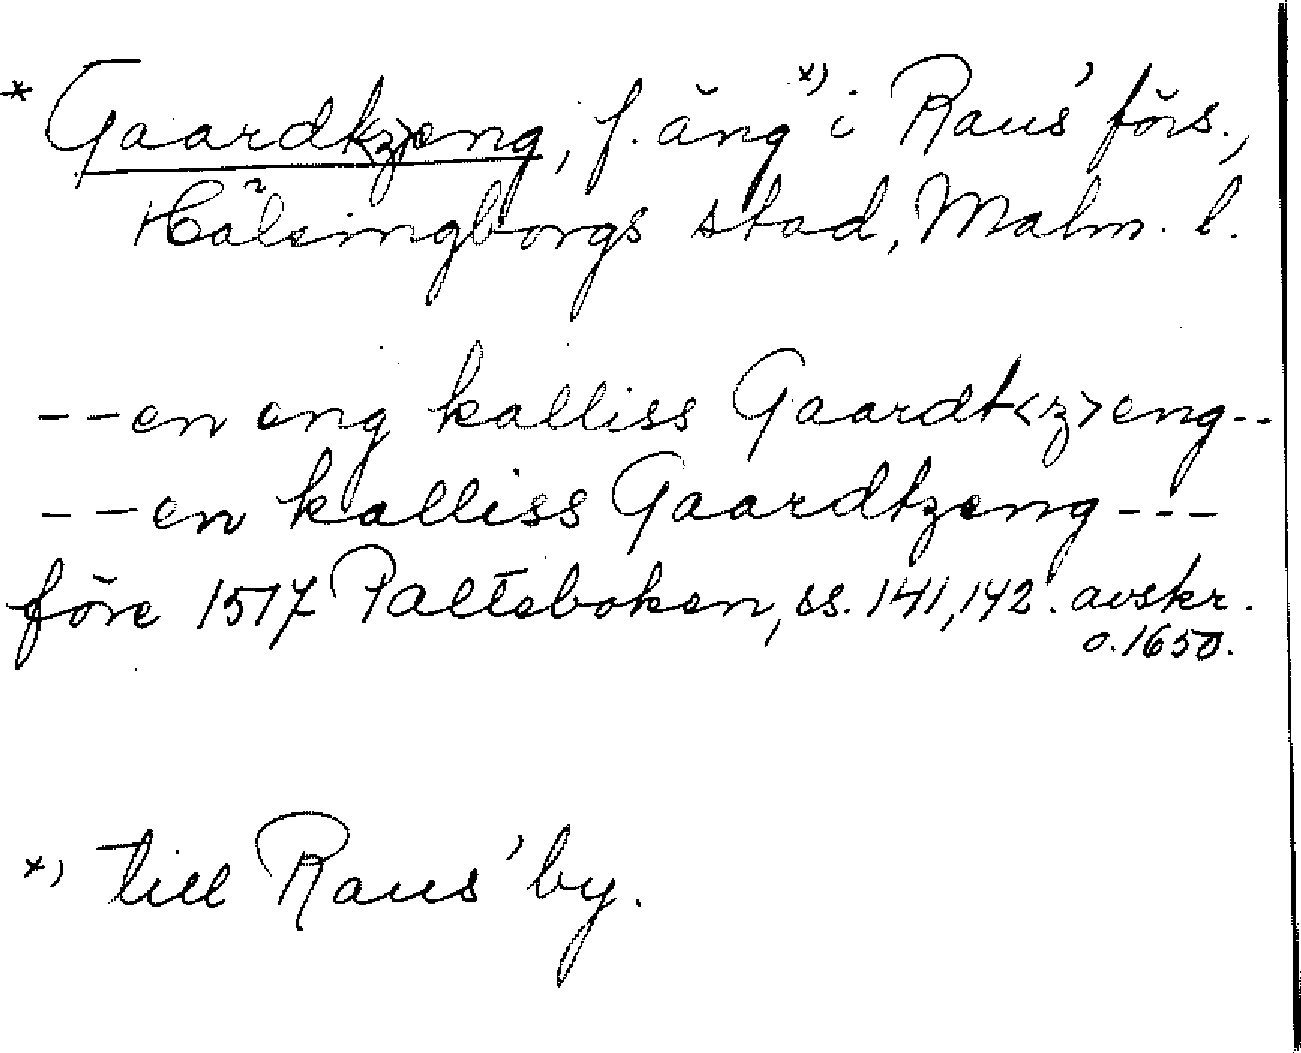 * Gaardt<z>eng, f. äng *) i Raus' förs.,
Hälsingborgs stad, Malm. l.
--en eng kalliss Gaardt<z>eng--
--en kalliss Gaardtzeng---
före 1517 Palteboken, ss. 141, 142. avskr.
o. 1650.
*) till Raus' by.